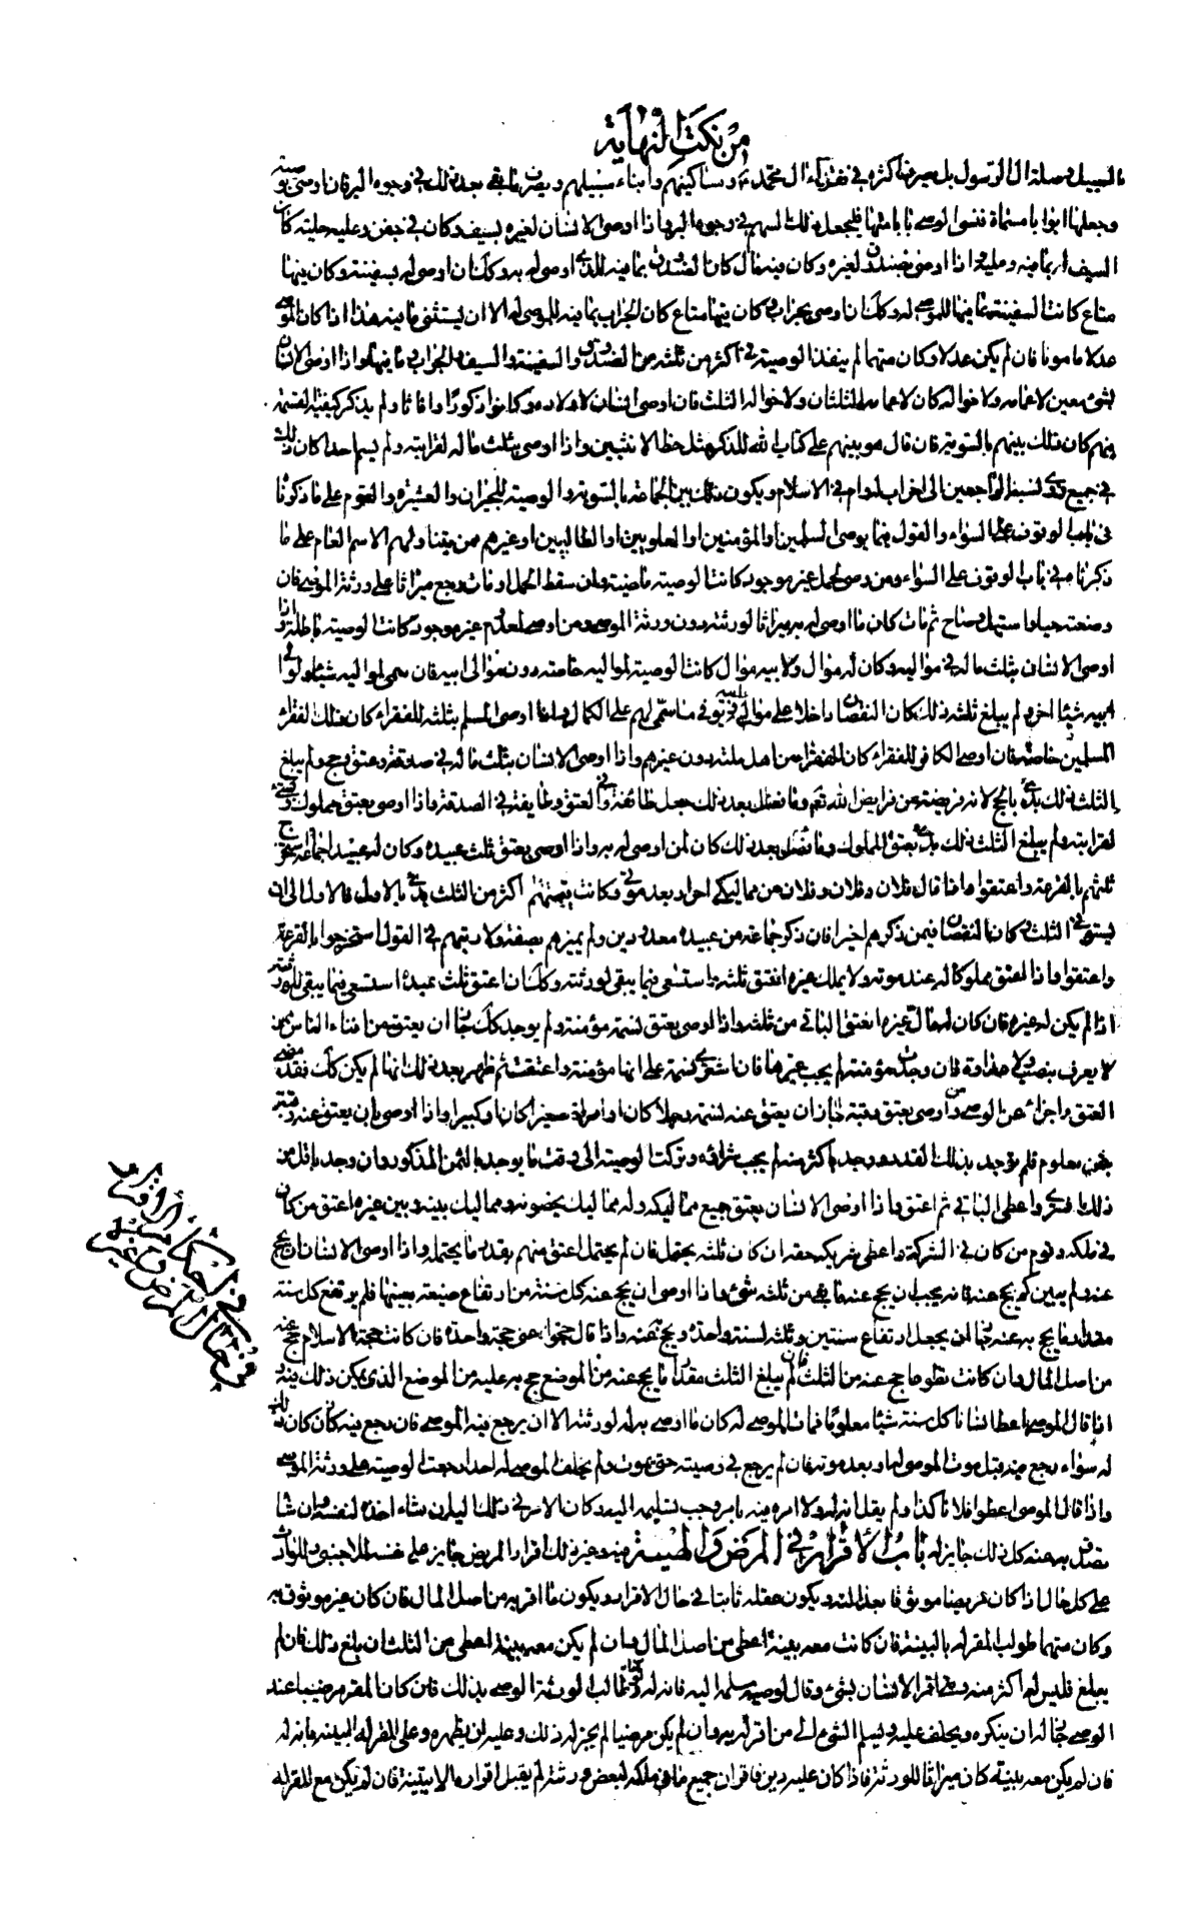 من نكت النهاية
السبيل صلة ال الرسول بل يصرف اكثره في فقراء ال محمد ومساكينهم وابناء سبيلهم ويصرف ما بقي بعد ذلك في وجوه البر فان اوصى بوصية
وجعلها ابوابا مسماة فنسى الوصي بابا منها فليجعل ذلك السهم في وجوه البر واذا اوصى الانسان لغيره بسيف وكان في جفن وعليه حلية كان
السيف له بما فيه وعليه واذا اوصى بصندوق لغيره وكان فيه مال كان الصندوق بما فيه للذي اوصى له به وكذلك ان اوصى له بسفينة وكان فيها
متاع كانت السفينة بما فيها للموصى له وكذلك ان اوصى بجراب وكان فيها متاع كان الجراب بما فيه للموصى له الا ان يستثني ما فيه هذا اذا كان الموصي
عدلا مامونا فان لم يكن عدلا وكان متهما لم ينفذ الوصية في اكثر من ثلثه من الصندوق والسفينة والسيف والجراب وما فيها واذا اوصى الانسان
بشيء معين لاعمامه ولاخواله كان لاعمامه الثلثان ولاخواله الثلث فان اوصى انسان لاولاده وكانوا ذكورا واناثا ولم يذكر كيفية القسمة
بينهم كان ذلك بينهم بالسوية فان قال هو بينهم على كتاب الله للذكر مثل حظ الانثيين واذا اوصى بثلث ماله لقرابته ولم يسم احدا كان ذلك
في جميع ذوي نسبه الراجعين الى اخر اب له وام في الاسلام ويكون ذلك بين الجماعة بالسوية والوصية للجيران والعشيرة والقوم على ما ذكرنا
في باب الوقوف على السواء والقول فيما يوصى للمسلمين او المؤمنين او العلويين او الطالبيين او غيرهم ممن يتناولهم الاسم العام على ما
ذكرناه في باب الوقوف على السواء ومن وصى لحمل غير موجود كانت الوصية ماضية وان سقط الحمل او مات رجع ميراثا على ورثة الموصي فان
وضعته حيا واستهل وصاح ثم مات كان ما اوصى له به ميراثا لورثته دون ورثة الموصي ومن اوصى لمعدوم غير موجود كانت الوصية باطلة واذا
اوصى الانسان بثلث ماله في مواليه وكان له موال ولابيه موال كانت الوصية لمواليه خاصة دون موالى ابيه فان سمى لمواليه شيئا ولموالي
ابيه شيئا اخر ولم يبلغ ثلثه ذلك كان النقصان داخلا على موالي ابيه ويوفي ما سمى لهم على الكمال واذا اوصى المسلم بثلثه للفقراء كان ذلك لفقراء
المسلمين خاصة فان اوصى الكافر للفقراء كان لفقراء من اهل ملته دون غيرهم واذا اوصى الانسان بثلث ماله في صدقة وعتق وحج ولم يبلغ
الثلث ذلك بدء بالحج لانه فريضة من فرايض الله تعه وما فضل بعد ذلك جعل طائفة في العتق وطايفة في الصدقة واذا اوصى بعتق مملوك وبشيء
لقرابته ولم يبلغ الثلث ذلك بدء بعتق المملوك وما فضل بعد ذلك كان لمن اوصى له به واذا اوصى بعتق ثلث عبيده وكان له عبيد جماعة استخرج
ثلثهم بالقرعة واعتقوا واذا قال فلان وفلان وفلان من مماليكي احرار بعد موتي وكانت قيمتهم اكثر من الثلث بدء بالاول فالاول الى ان
يستوفي الثلث وكان النقصان فيمن ذكرهم اخيرا فان ذكر جماعة من عبيده معدودين ولم يميزهم بصفة ولا رتبهم في القول استخرجوا بالقرعة
واعتقوا واذا اعتق مملوكا له عند موته ولا يملك غيره انعتق ثلثه واستسعى فيما يبقى لورثته وكذلك ان اعتق ثلث عبيده استسعى فيما يبقى للورثة
اذا لم يكن له غيره فان كان له مال غيره انعتق الباقي من ثلثه واذا اوصى بعتق نسمة مؤمنة ولم يوجد كذلك جاز ان يعتق من افناء الناس ممن
لا يعرف بنصب ولا عداوة فان وجدت مؤمنة لم يجب غيرها فان اشترى نسمة على انها مؤمنة واعتقت ثم ظهر بعد ذلك انها لم يكن كذلك فقد مضى
العتق واجزأ عن الوصي ومن اوصى بعتق رقبة جاز ان يعتق عنه نسمة رجلا كان او امراة صغيرا كان او كبيرا واذا اوصى بان يعتق عنه رقبة
بثمن معلوم فلم يوجد بذلك القدر ووجد باكثر منه لم يجب شراؤه وتركت الوصية الى وقت ما يوجد بالثمن المذكور وان وجد باقل من
ذلك اشتري واعطي الباقي ثم اعتق واذا اوصى الانسان بعتق جميع مماليكه وله مماليك يخصونه ومماليك بينه وبين غيره اعتق من كان
في ملكه وقوم من كان في الشركة واعطي شريكه حقه ان كان ثلثه يحتمل فان لم يحتمل اعتق منهم بقدر ما يحتمله واذا اوصى الانسان ان يحج
عنه ولم يبين كم يحج عنه فانه يجب ان يحج عنه ما بقي من ثلثه شيء واذا اوصى ان يحج عنه كل سنة من ارتفاع ضيعة بعينها فلم يرتفع كل سنة
مقدار ما يحج به عنه جاز ان يجعل ارتفاع سنتين وثلثه لسنة واحدة ويحج عنه واذا قال حجوا عني حجة واحدة فان كانت حجة الاسلام حج عنه
من اصل المال وان كانت تطوعا حج عنه من الثلث فان لم يبلغ الثلث مقدار ما يحج عنه من الموضع حج به عليه من الموضع الذي يمكن ذلك فيه
اذا قال الموصي اعط انسانا كل سنة شيئا معلوما فمات الموصى له كان ما اوصى به له لورثته الا ان يرجع فيه الموصي فان رجع فيه كان ذلك
له سواء رجع فيه قبل موت الموصى له او بعد موته فان لم يرجع في وصيته حتى يموت ولم يخلف الموصى له احدا رجعت الوصية على ورثة الموصي
واذا قال الموصي اعطوا فلانا كذا ولم يقل انه له ولا امره فيه بامر وجب تسليمه اليه وكان الامر في ذلك اليه ان شاء اخذه لنفسه وان شاء
تصدق به عنه كل ذلك جايز له باب الأقرار في المرض والهبة فيه وغير ذلك اقرار المريض جايز على نفسه للاجنبي وللوارث
على كل حال اذا كان مريضا موثوقا بعدالته ويكون عقله ثابتا في حال الاقرار ويكون ما اقر به من اصل المال فان كان غير موثوق به
وكان متهما طولب المقر له بالبينة فان كانت معه بينة اعطي من اصل المال وان لم يكن معه بينة اعطي من الثلث ان بلغ ذلك فان لم
يبلغ فليس له اكثر منه ومتى اقر الانسان بشيء وقال لوصيه سلمه اليه فانه له وطالب الورثة الوصي بذلك فان كان المقر مرضيا عند
الوصي جاز له ان ينكره ويحلف عليه ويسلم الشيء الى من اقر له به وان لم يكن مرضيا لم يجز له ذلك وعليه ان يظهره وعلى المقر له البينة بانه له
فان لم يكن معه بينة كان ميراثا للورثة فاذا كان عليه دين فاقر ان جميع ما في ملكه لبعض ورثته لم يقبل اقراره الا ببينة فان لم يكن مع المقر له